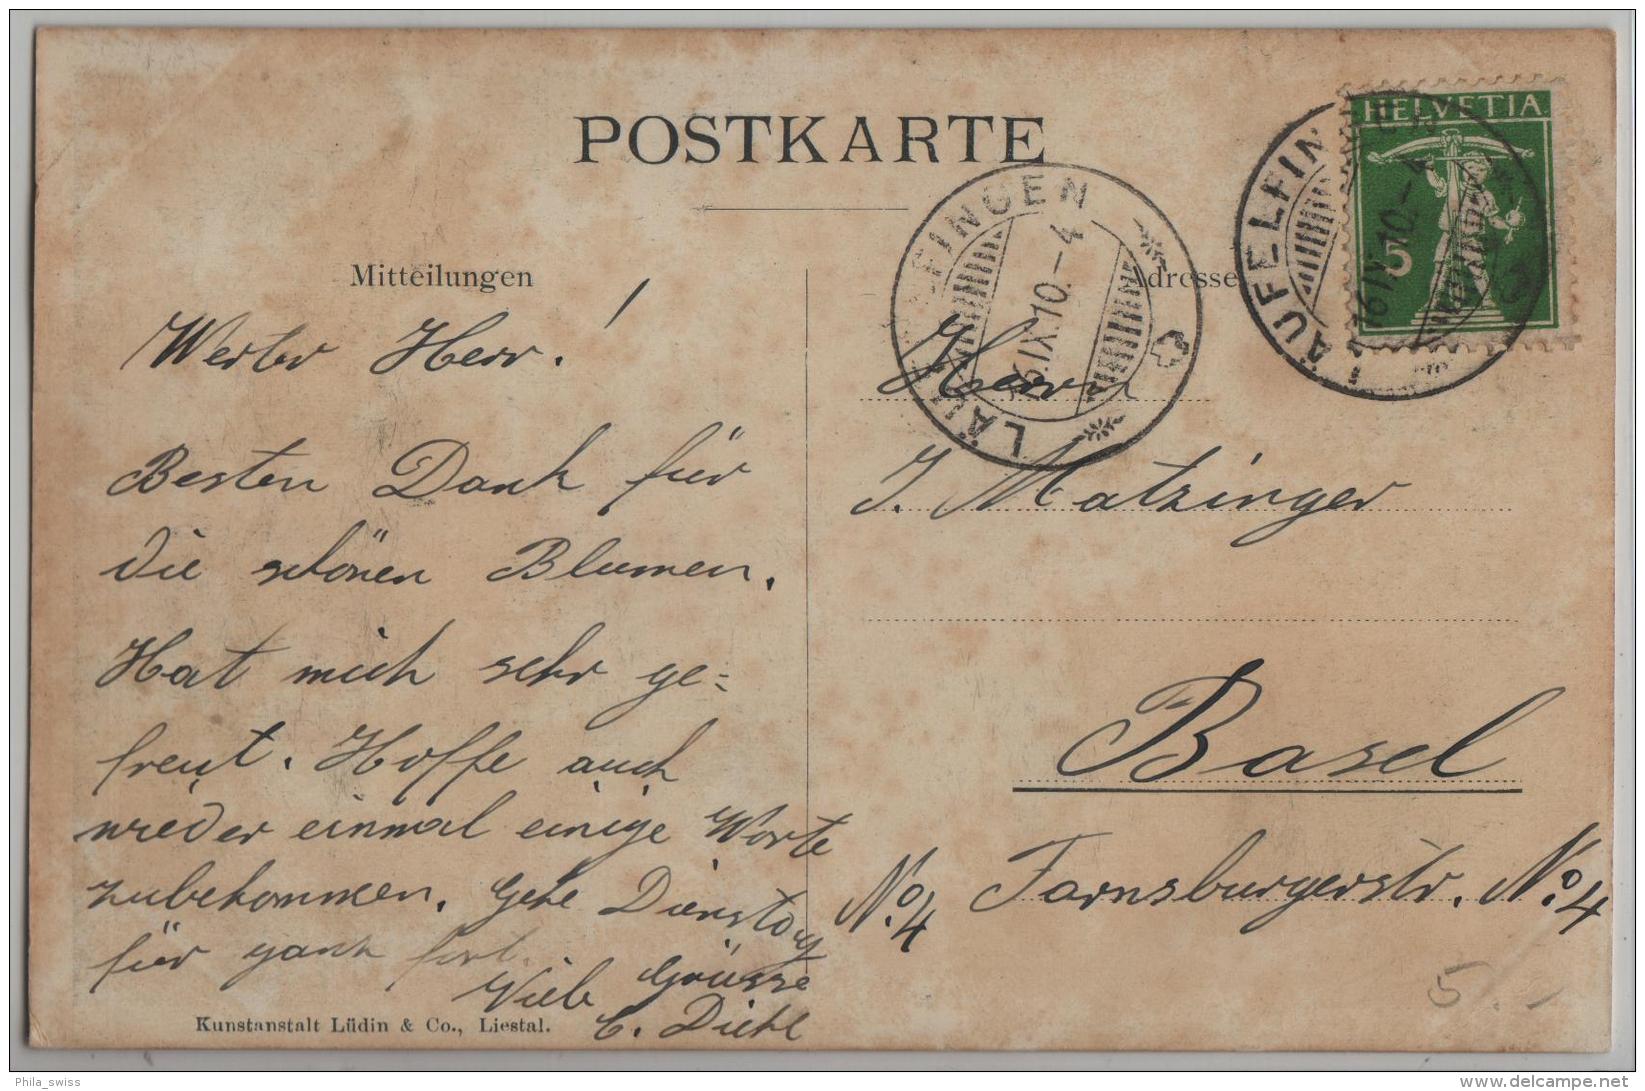 POSTKARTE
Mitteilungen
Werter Herr!
Besten Dank für
die schönen Blumen.
Hat mich sehr ge=
freut. Hoffe auch
wieder einmal einige Worte
zubekommen. Gehe Dienstag
für ganz fort.
Viele Grüsse
C. Diehl
Kunstanstalt Lüdin & Co., Liestal.
Adresse
Herrn
J. Matzinger
Basel
Farnsburgerstr. No. 4
No. 4
LÄUFELFINGEN
16.IX.10.-4
HELVETIA
5
LÄUFELFIN
16.IX.10.-4
5.-
Phila_swiss
www.delcampe.net